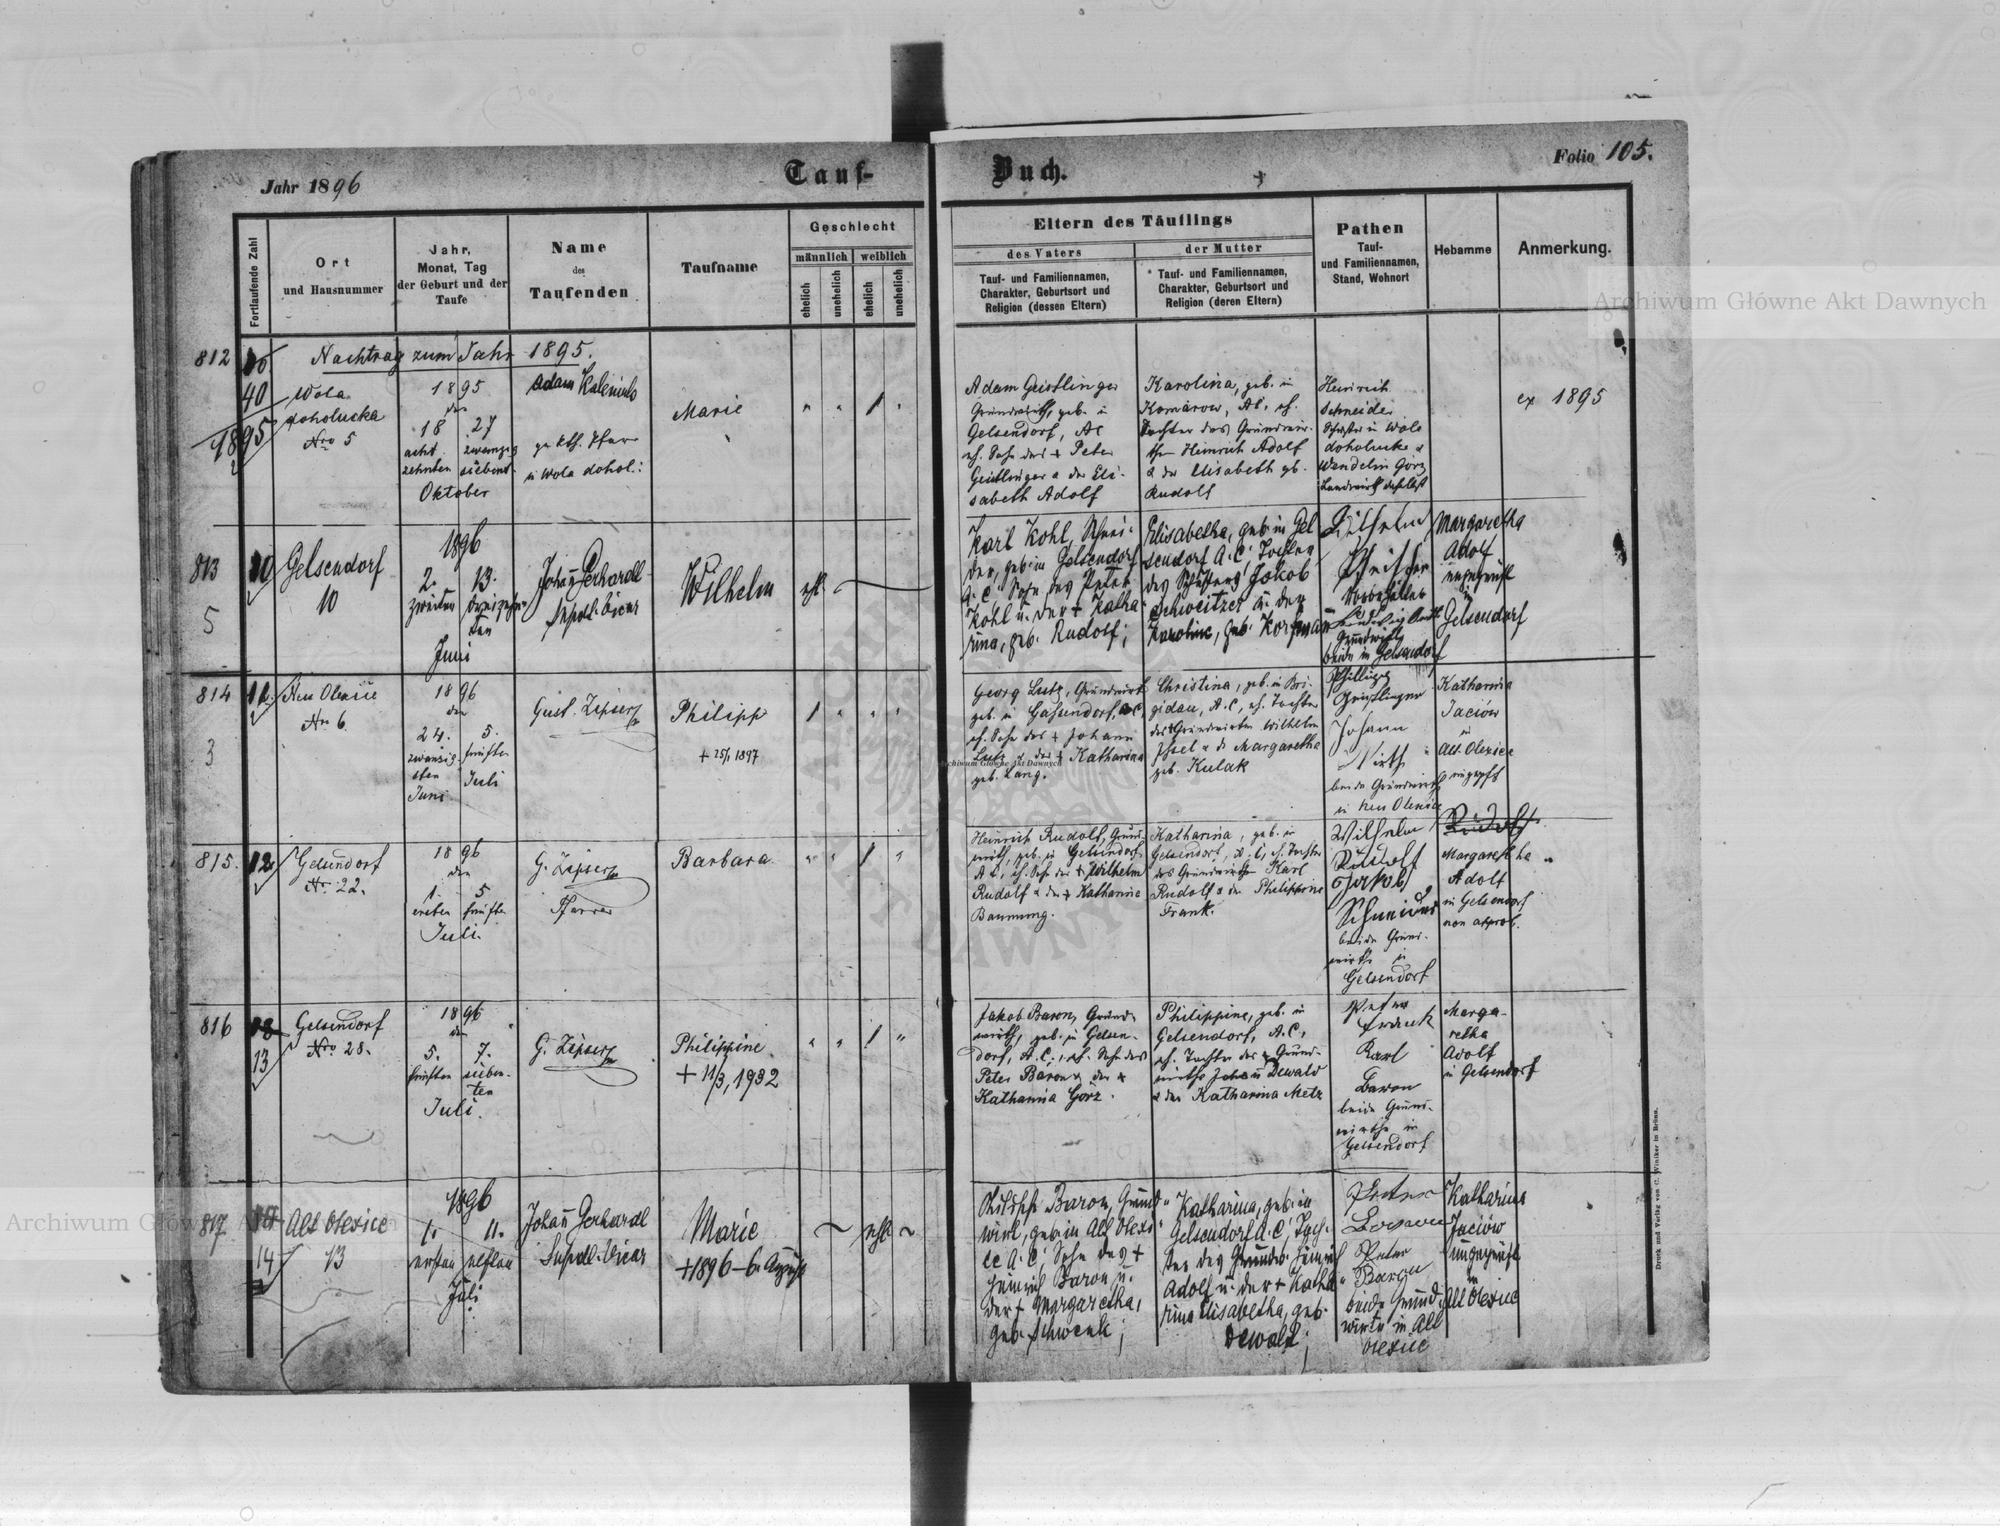 Jahr 1896
Tauf-
Buch.
Folio 105.
Fortlaufende Zahl
Ort
und Hausnummer
Jahr,
Monat, Tag
der Geburt und der
Taufe
Name
des
Taufenden
Taufname
Geschlecht
männlich
weiblich
ehelich
unehelich
ehelich
unehelich
Eltern des Täuflings
des Vaters
Tauf- und Familiennamen,
Charakter, Geburtsort und
Religion (dessen Eltern)
der Mutter
Tauf- und Familiennamen,
Charakter, Geburtsort und
Religion (deren Eltern)
Pathen
Tauf-
und Familiennamen,
Stand, Wohnort
Hebamme
Anmerkung.
Nachtrag zum Jahr 1895.
812
40
1895
Wola
doholucka
Nro 5
1895
den
18 27
acht zwanzig
zehnten siebent
Oktober
Adam
in Wola dohol.:
Marie
Adam Geistlinger
Grundwirth, geb. in
Gelsendorf, AC
eh. Sohn des + Peter
Geistlinger u der Eli-
sabeth Adolf
Karolina, geb. in
Komarow, AC, eh.
Tochter des Grundwir-
then Heinrich Adolf
u der Elisabeth gb.
Rudolf
Heinrich
Schneider
in Wola
doholucka u
Wendelin Görz
Landwirth daselbst
ex 1895
813
5
10
Gelsendorf
10
1896
2. 13.
zweiten dreizehn-
ten
Juni
Johann Gerhardt
Vicar
Wilhelm
ehl.
Karl Kohl, Schnei-
der, geb. in Gelsendorf
A.C. Sohn des Peter
Kohl u. der + Katha-
rina, geb. Rudolf;
Elisabetha, geb. in Gel
sendorf A.C. Tochter
des Jakob
Schweitzer u. der
Karoline, geb.
Wilhelm
Grundwirth
beide in Gelsendorf
Margaretha
Adolf
ungeprüft
in
Gelsendorf
814
3
11.
Neu Olexice
Nr. 6
1896
den
24. 5.
zwanzig- fünften
sten
Juni Juli
Gust. Zipser
Philipp
+ 25/1 1897
Georg Lutz, Grundwirth
geb. in Gassendorf, A.C.
eh. Sohn des + Johann
Lutz u der + Katharina
geb. Lang.
Christina, geb. in Bri-
gidau, A.C, eh. Tochter
des Grundwirten Wilhelm
u d. Margaretha
geb. Kulak
Philipp
Geistlinger
Johann
Wirth
beide Grundwirth
in Neu Olexice
Katharina
Jaciów
in
Alt. Olexice
815.
12
Gelsendorf
Nr. 22.
1896
den
1. 5.
ersten fünften
Juli.
G. Zipser
Pfarrer
Barbara
Heinrich Rudolf, Grund-
wirth, geb. in Gelsendorf
A.C., eh. Sohn des + Wilhelm
Rudolf u der + Katharina
Baumung.
Katharina, geb. in
Gelsendorf, A.C, eh. Tochter
des Grundwirthen Karl
Rudolf u der Philippine
Frank.
Wilhelm
Rudolf
Jakob
Schneider
beide Grund-
wirthe in
Gelsendorf
Rudolf
Margaretha
Adolf
in Gelsendorf
non approb.
816
13
Gelsendorf
Nro 28.
1896
den
5. 7.
fünften sieben-
ten
Juli.
G. Zipser
Philippine
+ 11/3, 1932
Jakob Baron, Grund-
wirth, geb. in Gelsen-
dorf, A.C., eh. Sohn des
Peter Baron u der +
Katharina Görz.
Philippine, geb. in
Gelsendorf, A.C,
eh. Tochter des + Grund-
wirths Johann Dewald
u der Katharina Metz
Peter
Frank
Karl
Baron
beide Grund-
wirthe in
Gelsendorf
Marga-
retha
Adolf
in Gelsendorf
817
14
Alt Olexice
13
1896
1. 11.
ersten elften
Juli
Johann Gerhardt
Vicar
Marie
+ 1896 - 6. August
ehl
Philipp Baron, Grund-
wirt, geb. in Alt Olexi-
ce A.C, Sohn des +
Heinrich Baron u.
der + Margaretha,
geb. Schwenk;
Katharina, geb. in
Gelsendorf A.C, Toch-
ter des Grundw. Heinrich
Adolf u. der + Katha-
rina Elisabetha, geb.
Dewald;
Peter
Baron
beide Grund-
wirte in Alt
Olexice
Katharina
Jaciów
ungeprüft
in
Alt Olexice
Druck und Verlag von C. Winiker in Brünn.
Archiwum Główne Akt Dawnych
Archiwum Główne Akt Dawnych
Archiwum Główne Akt Dawnych